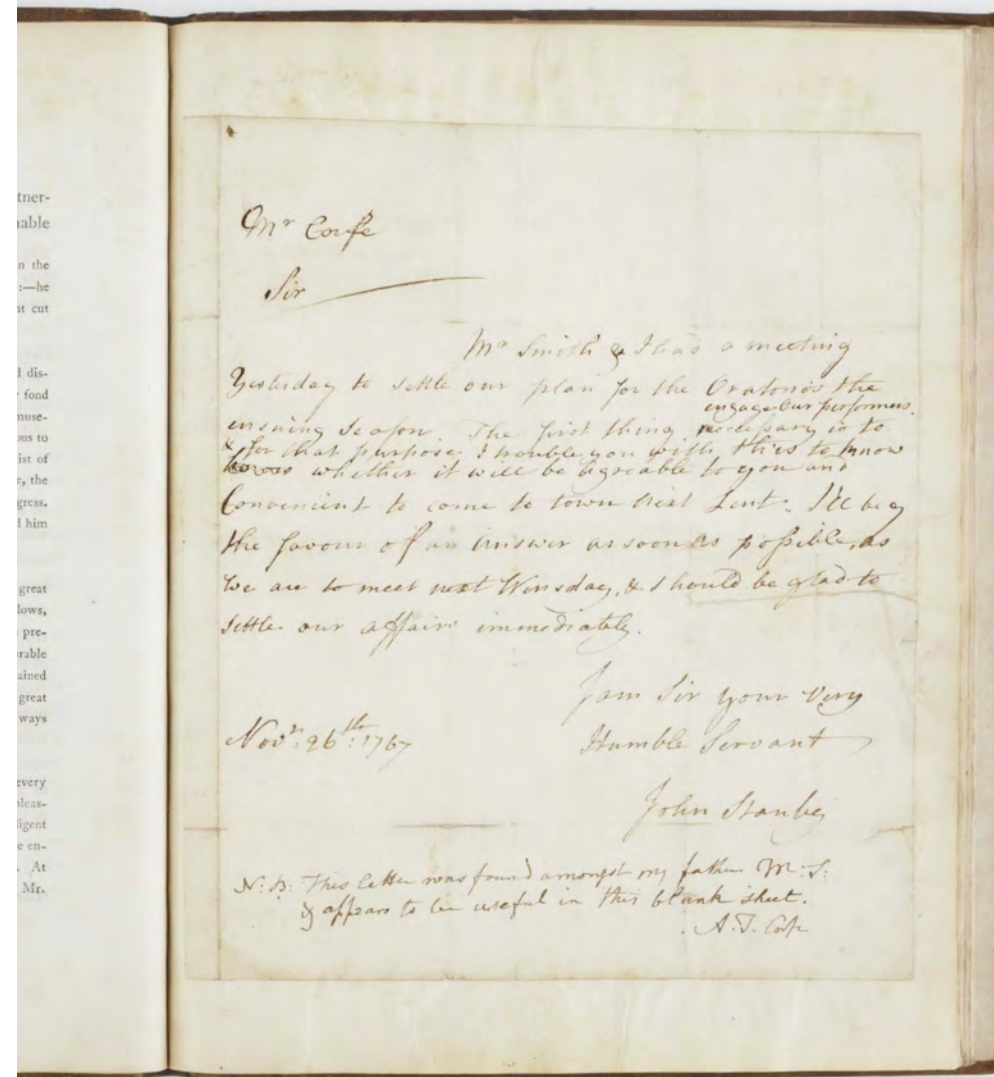 tner-
nable
n the
:—he
nt cut
d dis-
r fond
muse-
ous to
ist of
e, the
gress.
d him
great
lows,
pre-
rable
ained
great
ways
every
pleas-
ligent
e en-
. At
Mr.
Mr Corfe
Sir
Mr Smith & I had a meeting
Yesterday to settle our plan for the Oratorio's the
engage our performers.
ensuing Season. The first thing necessary is to
& for that purpose I trouble you with this to know
whether it will be agreable to you and
Convenient to come to town next Lent. I'll beg
the favour of an Answer as soon as possible, as
We are to meet next Winsday, & I should be glad to
settle our affairs immediately.
I am Sir your Very
Novr: 26th: 1767 Humble Servant
John Stanley
N: B: This letter was found amongst my father M: S:
& appears to be useful in this blank sheet.
A. T. Corfe